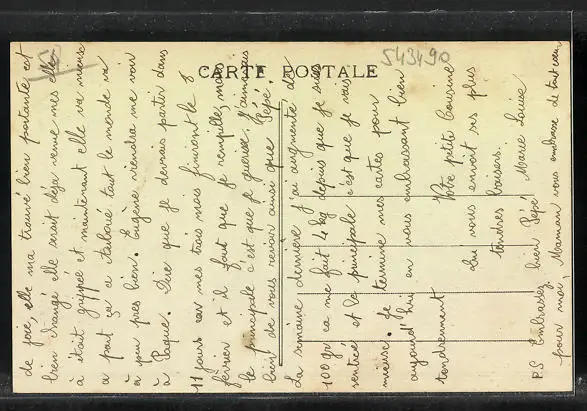 CARTE POSTALE
54
543490
de joie, elle m'a trouvé bien portante est
bien changé elle serait déjà venue mes elle
à était grippée et maintenant elle va mieux
a part ça a l'abaié tout le monde va
à peu près bien. Eugène viendra me voir
à Paque. Dire que je devrais partir dans
11 jours car mes trois mois finiront le 8
février et il faut que je rempille, mais
le principale c'est que je guérisse. J'aimerais
bien de vous revoir ainsi que Pépé.
La semaine dernière j'ai augmenté de
100 gr ça me fait 4 kg depuis que je suis
rentrée et le principale c'est que je vais
mieux. Je termine mes cartes pour
aujourd'hui en vous embrassant bien
tendrement
Votre petite cousine
qui vous envoit ses plus
tendres baisers.
Marie Louise
P.S Embrassez bien Pépé
pour moi, Maman vous embrasse de tout cœur